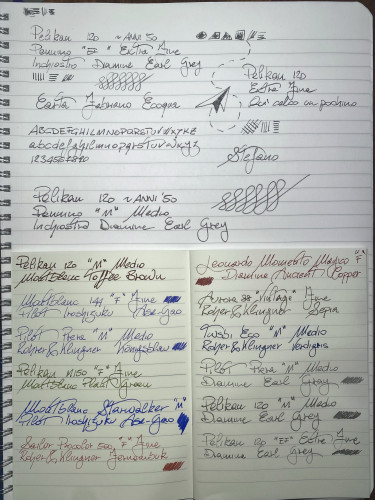 Pelikan 120 ~ ANNI '50
Pennino "EF" Extra Fine
Inchiostro Diamine Earl Grey
Carta Fabriano Ecoqua
Pelikan 120
Extra Fine
Qui calco un pochino
ABCDEFGHILMNOPQRSTUVWXYKZ
abcdefghilmnopqrstuvwxyz
1234567890
Stefano
Pelikan 120 ~ ANNI '50
Pennino "M" Medio
Inchiostro Diamine Earl Grey
Pelikan 120 "M" Medio
Montblanc Toffee Brown
Montblanc 144 "F" Fine
Pilot Iroshizuku Asa-Gao
Pilot Prera "M" Medio
Rohrer & Klingner
Pelikan M150 "F" Fine
Montblanc Green
Montblanc Starwalker "M"
Pilot Iroshizuku Asa-Gao
Sailor 500 "F" Fine
Rohrer & Klingner Fernambuk
Leonardo Momento Magico "F"
Diamine Ancient Copper
Aurora 88 Fine
Rohrer & Klingner Sepia
Twsbi Eco "M" Medio
Rohrer & Klingner Verdigris
Pilot Prera "M" Medio
Diamine Earl Grey
Pelikan 120 "M" Medio
Diamine Earl Grey
Pelikan 120 "EF" Extra Fine
Diamine Earl Grey